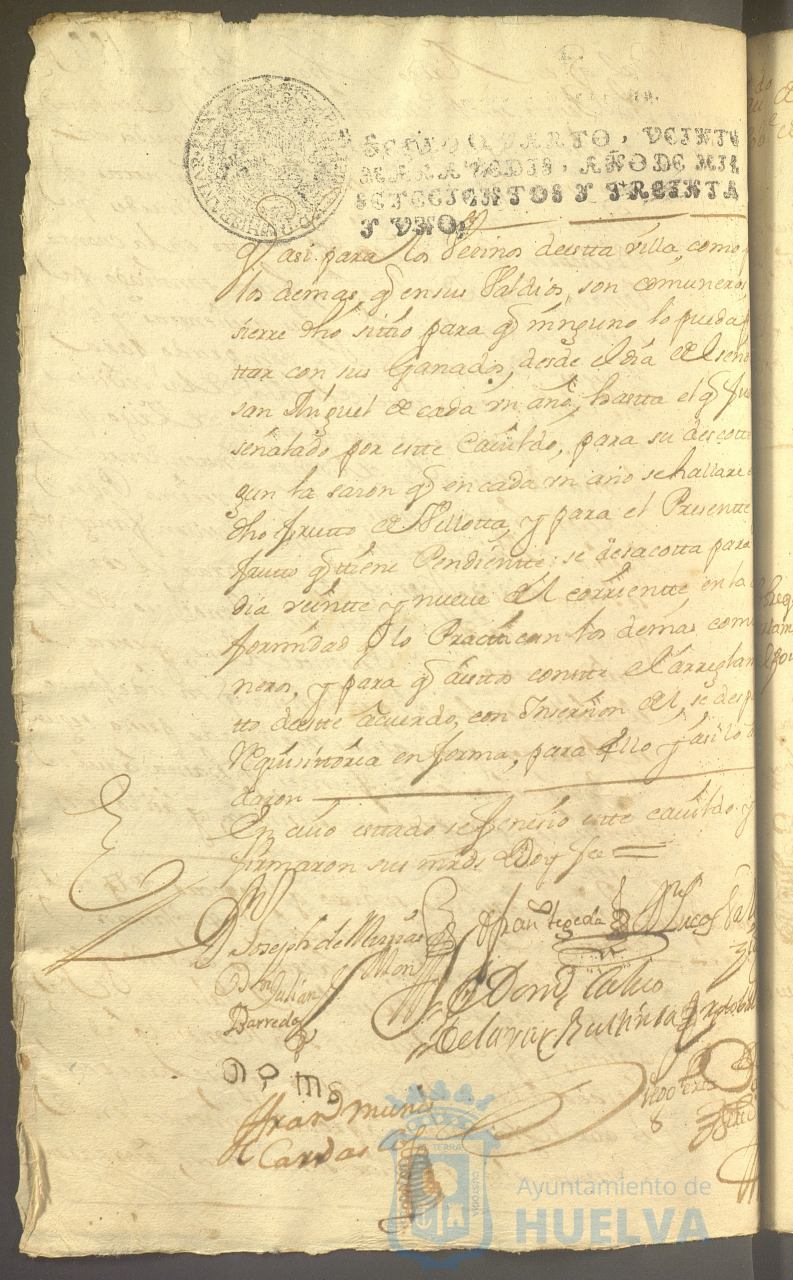 SELLO QVARTO, VEINTE
MARAVEDIS, AÑO DE MIL
SETECIENTOS Y TREINTA
Y VNO.
q asi para los Vecinos de estta villa, como
los demas, q en sus Valdios, son comuneros
sierre dho sittio para q ninguno lo pueda
ttar con sus Ganados, desde el dia de el seño
san Miguel de cada un año, hastta el q fu
señalado por estte Cavildo, para su descotte
gun la sazon q en cada un año se hallare
dho frutto de Vellotta, y para el Presentte
frutto q ttiene Pendientte se desacotta para
dia veintte y nueve del corrientte, en la
formidad q lo Practican los demas comu
neros, y para q a esttos constte el arreglam
tto de estte acuerdo, con Inserzion del, se desp
Requisittoria en forma, para ello y asi lo a
daron
En cuio esttado se feneció estte cavildo y
firmaron sus mrds Doy fee
D Joseph de
Fran tegeda
Lucas
Dn Julian
Barredo
Domg Calvo
de la
Fran Muñi
Cardas
Ayuntamiento de
HUELVA